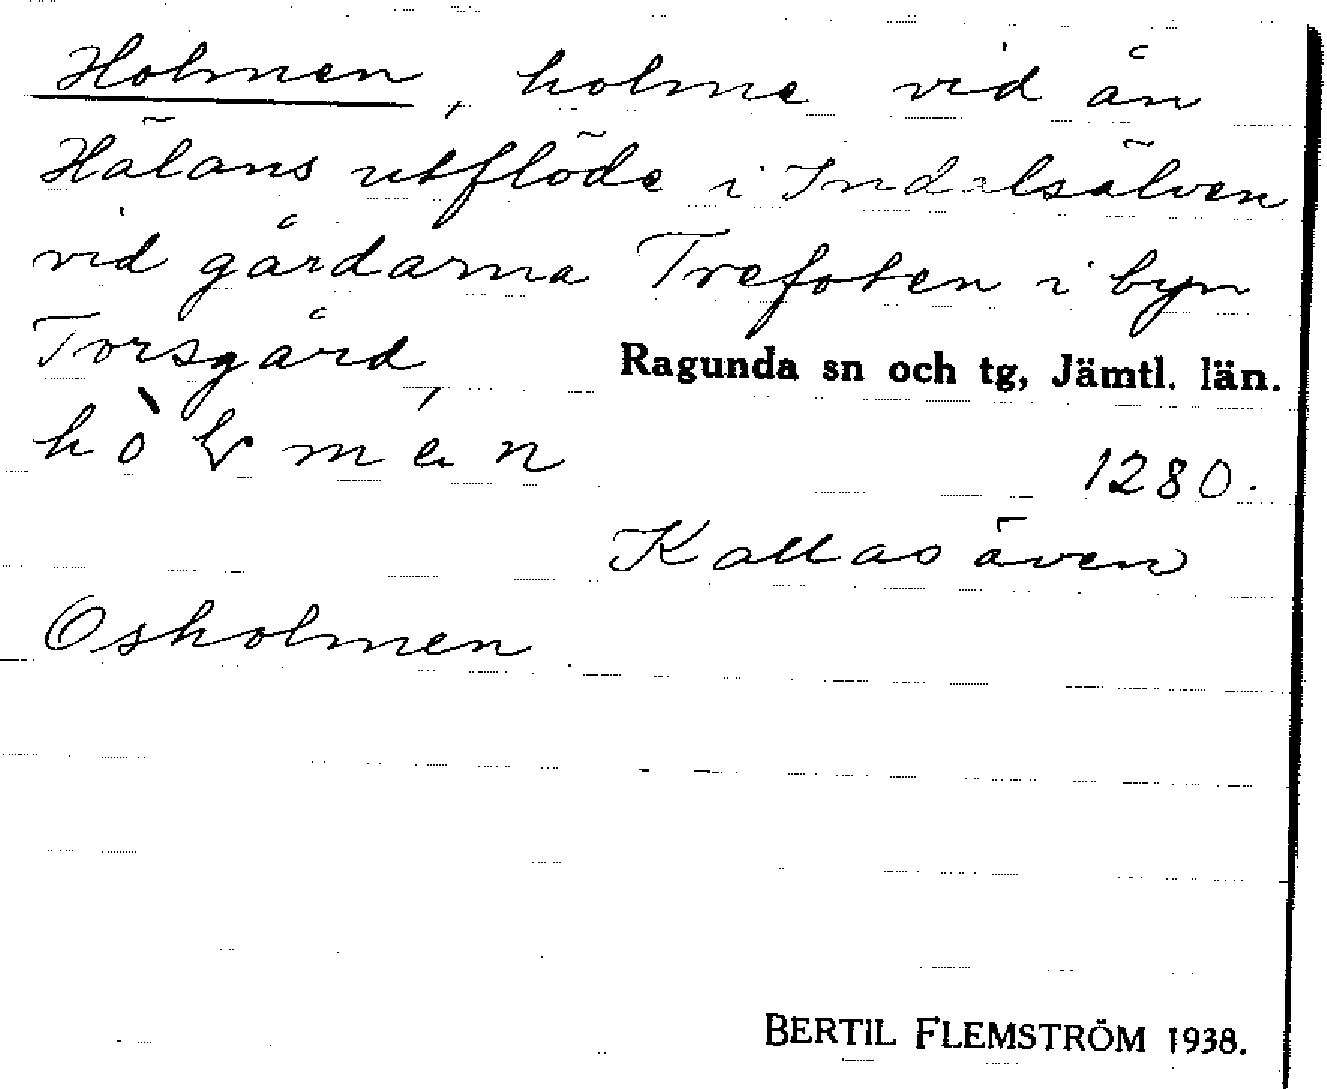 Holmen, holme vid ån
Hälåns utflöde i Indalsälven
vid gårdarna Trefoten i byn
Torsgård,
Ragunda sn och tg, Jämtl. län.
1280.
Kallas även
Osholmen
BERTIL FLEMSTRÖM 1938.